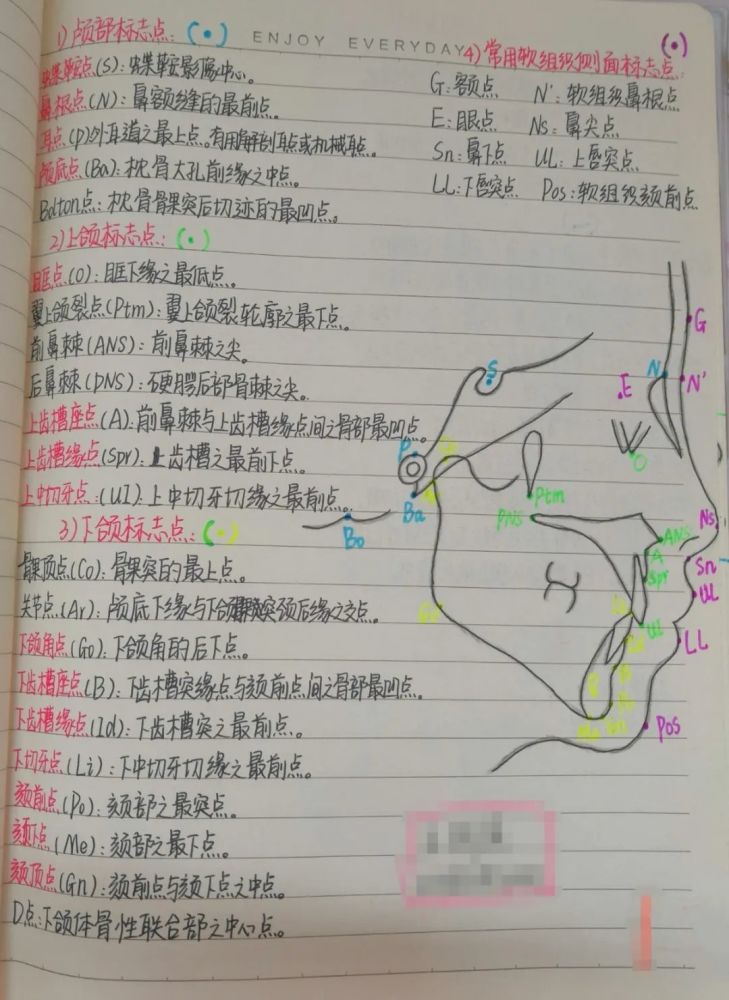 1) 颅部标志点：(•)
ENJOY EVERYDAY
蝶鞍点(S)：蝶鞍影像中心。
鼻根点(N)：鼻额缝的最前点。
耳点(P)外耳道之最上点。有用解剖耳点或机械耳点。
颅底点(Ba)：枕骨大孔前缘之中点。
Bolton点：枕骨髁突后切迹的最凹点。
2)上颌标志点：(•)
眶点(O)：眶下缘之最低点。
翼上颌裂点(Ptm)：翼上颌裂轮廓之最下点。
前鼻棘(ANS)：前鼻棘之尖。
后鼻棘(PNS)：硬腭后部骨棘之尖。
上齿槽座点(A)：前鼻棘与上齿槽缘点间之骨部最凹点。
上齿槽缘点(Spr)：上齿槽之最前下点。
上中切牙点：(UI)上中切牙切缘之最前点。
3)下颌标志点：(•)
髁顶点(Co)：髁突的最上点。
关节点(Ar)：颅底下缘与下颌髁突颈后缘之交点。
下颌角点(Go)：下颌角的后下点。
下齿槽座点(B)：下齿槽突缘点与颏前点间之骨部最凹点。
下齿槽缘点(Id)：下齿槽突之最前点。
下切牙点(Li)：下中切牙切缘之最前点。
颏前点(Po)：颏部之最突点。
颏下点(Me)：颏部之最下点。
颏顶点(Gn)：颏前点与颏下点之中点。
D点：下颌体骨性联合部之中心点。
4)常用软组织侧面标志点：(•)
G：额点 N'：软组织鼻根点
E：眼点 Ns：鼻尖点
Sn：鼻下点 UL：上唇突点
LL：下唇突点 Pos：软组织颏前点
G
S
N
N'
E
P
O
Ba
Ptm
PNS
Bo
Ns
ANS
A
Sn
Spr
UL
Go
UI
LL
Me
Gn
Pos